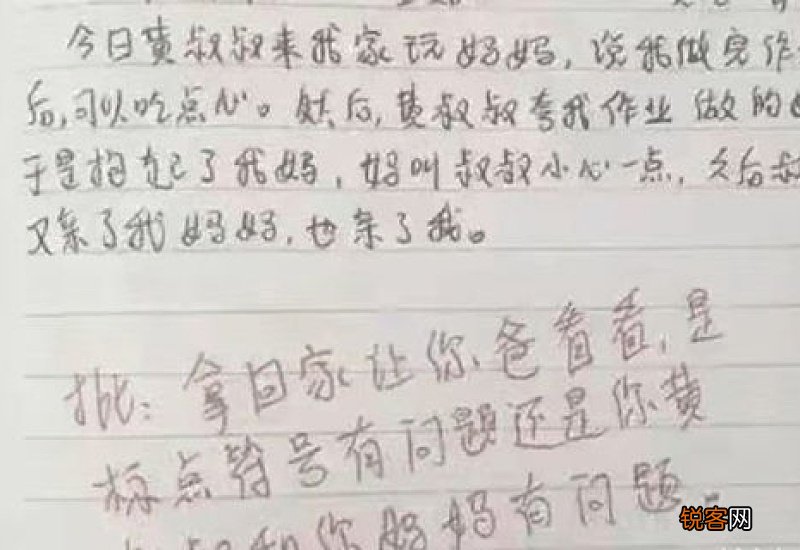 今日黄叔叔来我家玩妈妈，说我做完作
后，可以吃点心。然后，黄叔叔夸我作业做的
于是抱起了我妈，妈叫叔叔小心一点，久后叔
又亲了我妈妈，也亲了我。
批：拿回家让你爸看看，是
标点符号有问题还是你黄
叔和你妈妈有问题。
锐客网